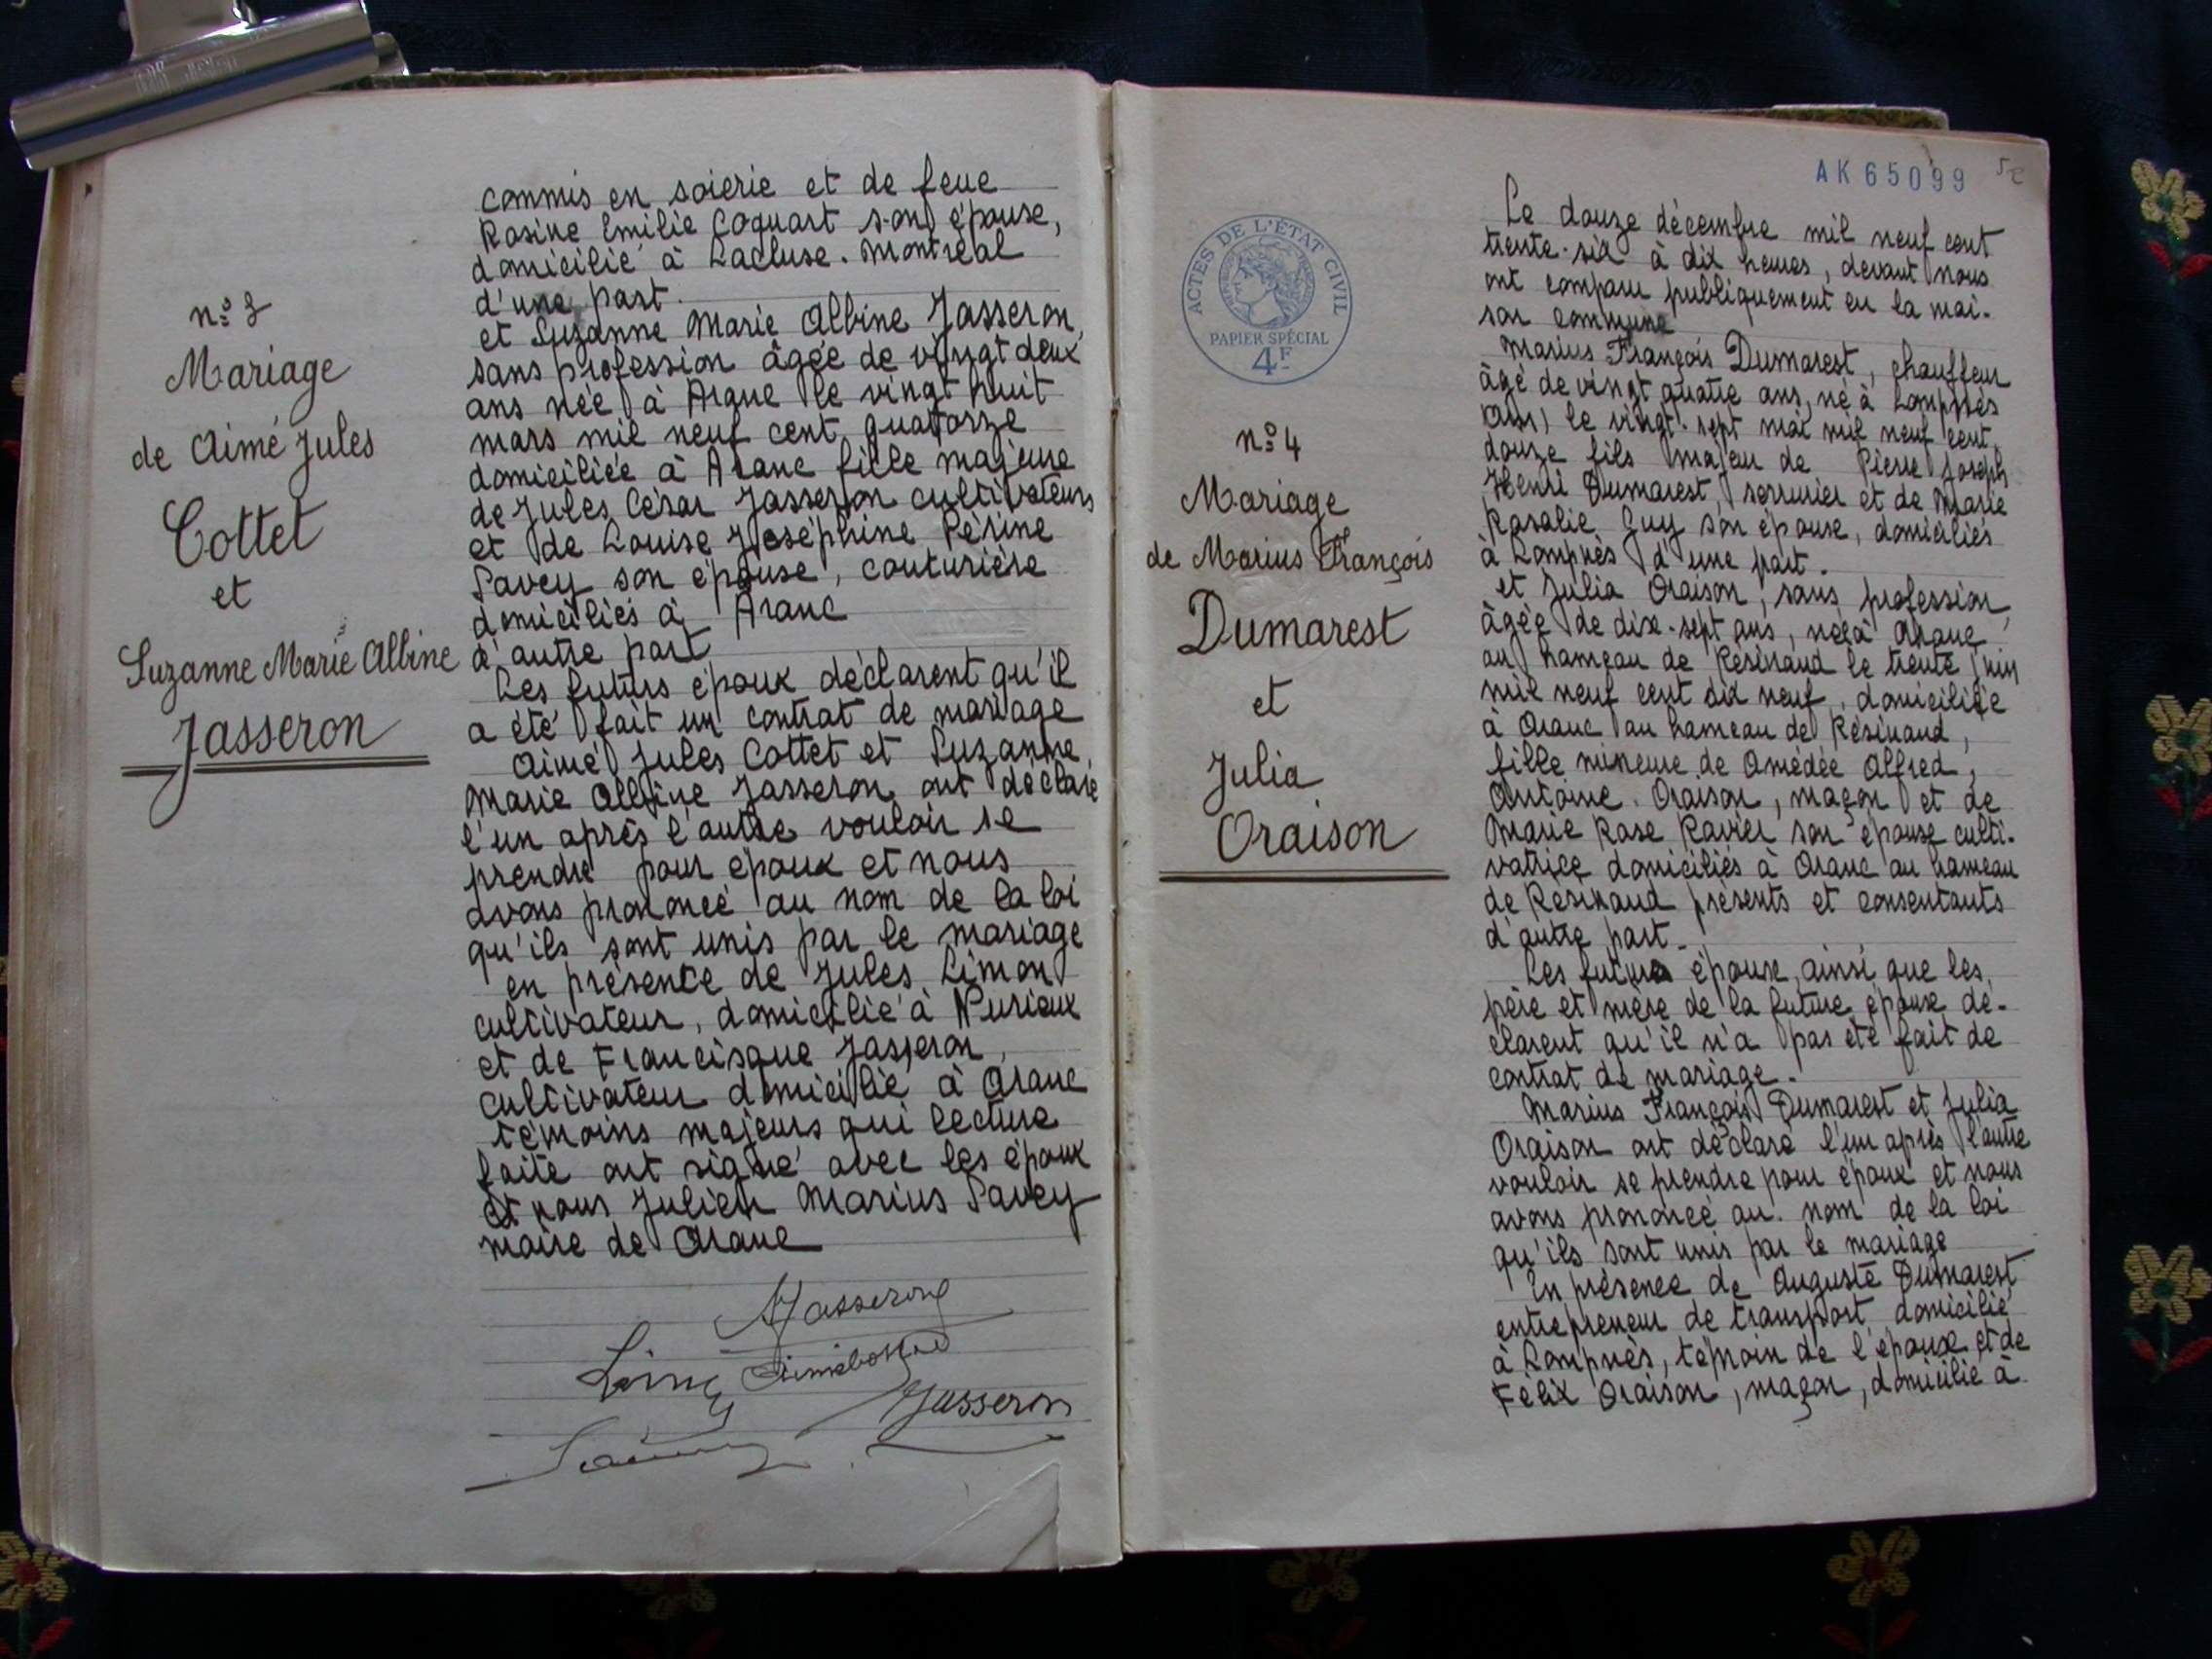 commis en soierie et de feue
Rosine Emilie Coquart son épouse,
domicilié à Lacluse. Montréal
d'une part.
et Suzanne Marie Albine Jasseron,
sans profession âgée de vingt deux
ans née à Aranc le vingt huit
mars mil neuf cent quatorze
domiciliée à Aranc fille majeure
de Jules César Jasseron cultivateurs
et de Louise Joséphine Périne
Savey son épouse, couturière
domiciliés à Aranc
d'autre part
Les futurs époux déclarent qu'il
a été fait un contrat de mariage
Aimé Jules Cottet et Suzanne
Marie Albine Jasseron ont déclaré
l'un après l'autre vouloir se
prendre pour époux et nous
avons prononcé au nom de la loi
qu'ils sont unis par le mariage
en présence de Jules Limon
cultivateur, domicilié à Nurieux
et de Francisque Jasseron,
cultivateur domicilié à Aranc
témoins majeurs qui lecture
faite ont signé avec les époux
et nous Julien Marius Savey
maire de Aranc
n° 3
Mariage
de Aimé Jules
Cottet
et
Suzanne Marie Albine
Jasseron
Jasseron
Jasseron
AK 65099
ACTES DE L'ÉTAT CIVIL
PAPIER SPÉCIAL
4F
n° 4
Mariage
de Marius François
Dumarest
et
Julia
Oraison
Le douze décembre mil neuf cent
trente-six à dix heures, devant nous
ont comparu publiquement en la mai-
son commune
Marius François Dumarest, chauffeur
âgé de vingt quatre ans, né à Lompnès
(Ain) le vingt-sept mai mil neuf cent
douze fils majeur de Pierre Joseph
Henri Dumarest, serrurier et de Marie
Rosalie Guy son épouse, domiciliés
à Lompnès d'une part.
et Julia Oraison, sans profession,
âgée de dix-sept ans, née à Aranc
au hameau de Résinand le trente juin
mil neuf cent dix neuf, domiciliée
à Aranc au hameau de Résinand,
fille mineure de Amédée Alfred,
Antoine Oraison, maçon et de
Marie Rose Ravier son épouse culti-
vatrice domiciliés à Aranc au hameau
de Résinand présents et consentants
d'autre part.
Les futurs époux, ainsi que les
père et mère de la future épouse dé-
clarent qu'il n'a pas été fait de
contrat de mariage.
Marius François Dumarest et Julia
Oraison ont déclaré l'un après l'autre
vouloir se prendre pour époux et nous
avons prononcé au nom de la loi
qu'ils sont unis par le mariage
En présence de Auguste Dumarest
entrepreneur de transport domicilié
à Lompnès, témoin de l'époux et de
Félix Oraison, maçon, domicilié à